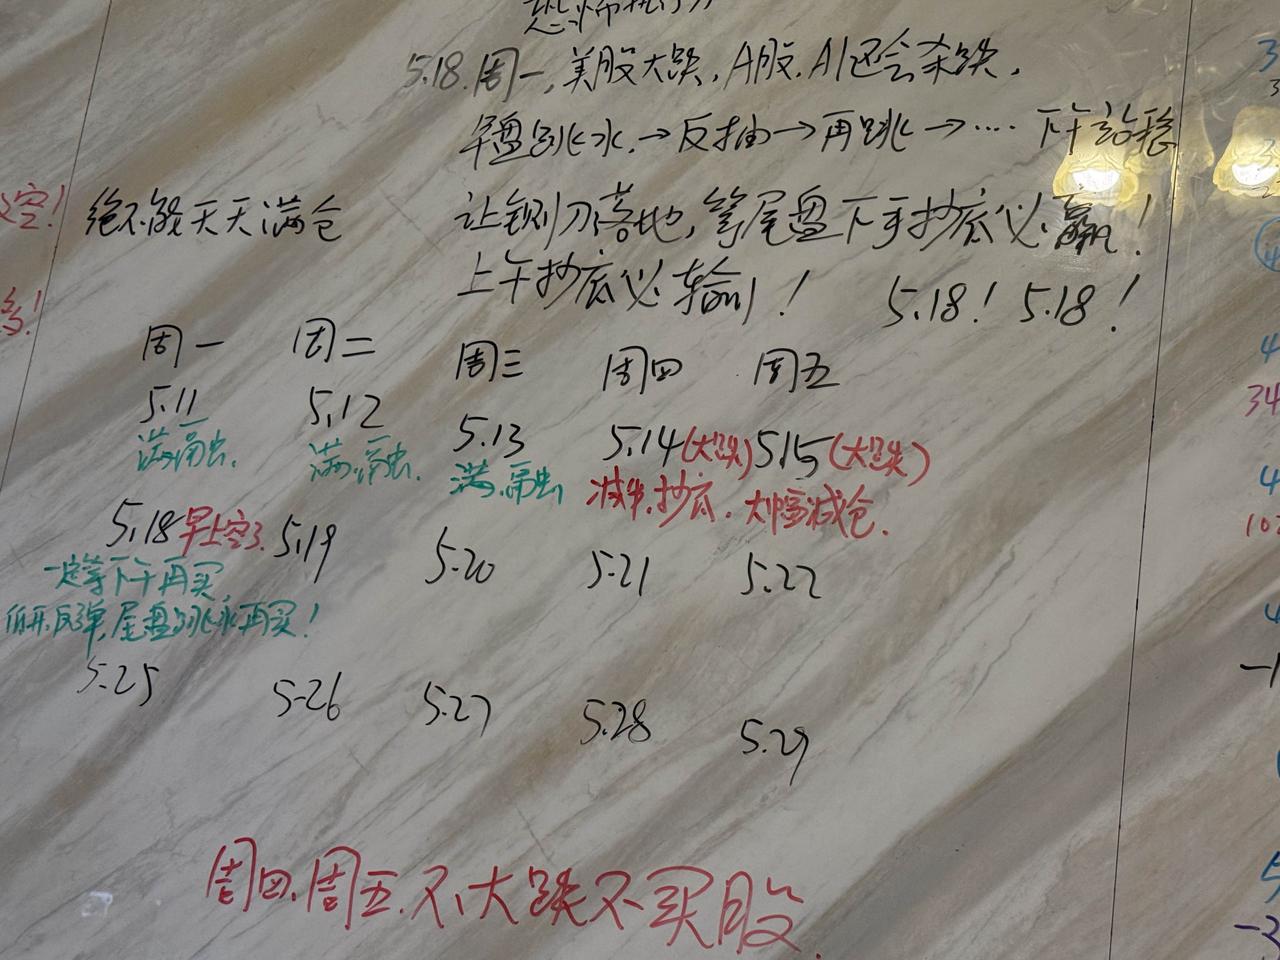 5.18.周一,美股大跌,A股.AI还会杀跌,
早盘跳水.→反抽→再跳→….下午站稳
空!
绝不能天天满仓
让铡刀落地,等尾盘下手抄底必赢!
上午抄底必输!
5.18! 5.18!
周一 周二 周三 周四 周五
5.11 5.12 5.13 5.14(大跌) 5.15(大跌)
满融. 满.融. 满.融 减半.抄底. 大幅减仓.
5.18早上空了. 5.19 5.20 5.21 5.22
一定等下午再买,
低开.反弹,尾盘跳水再买!
5.25 5.26 5.27 5.28 5.29
周四.周五.不大跌不买股.